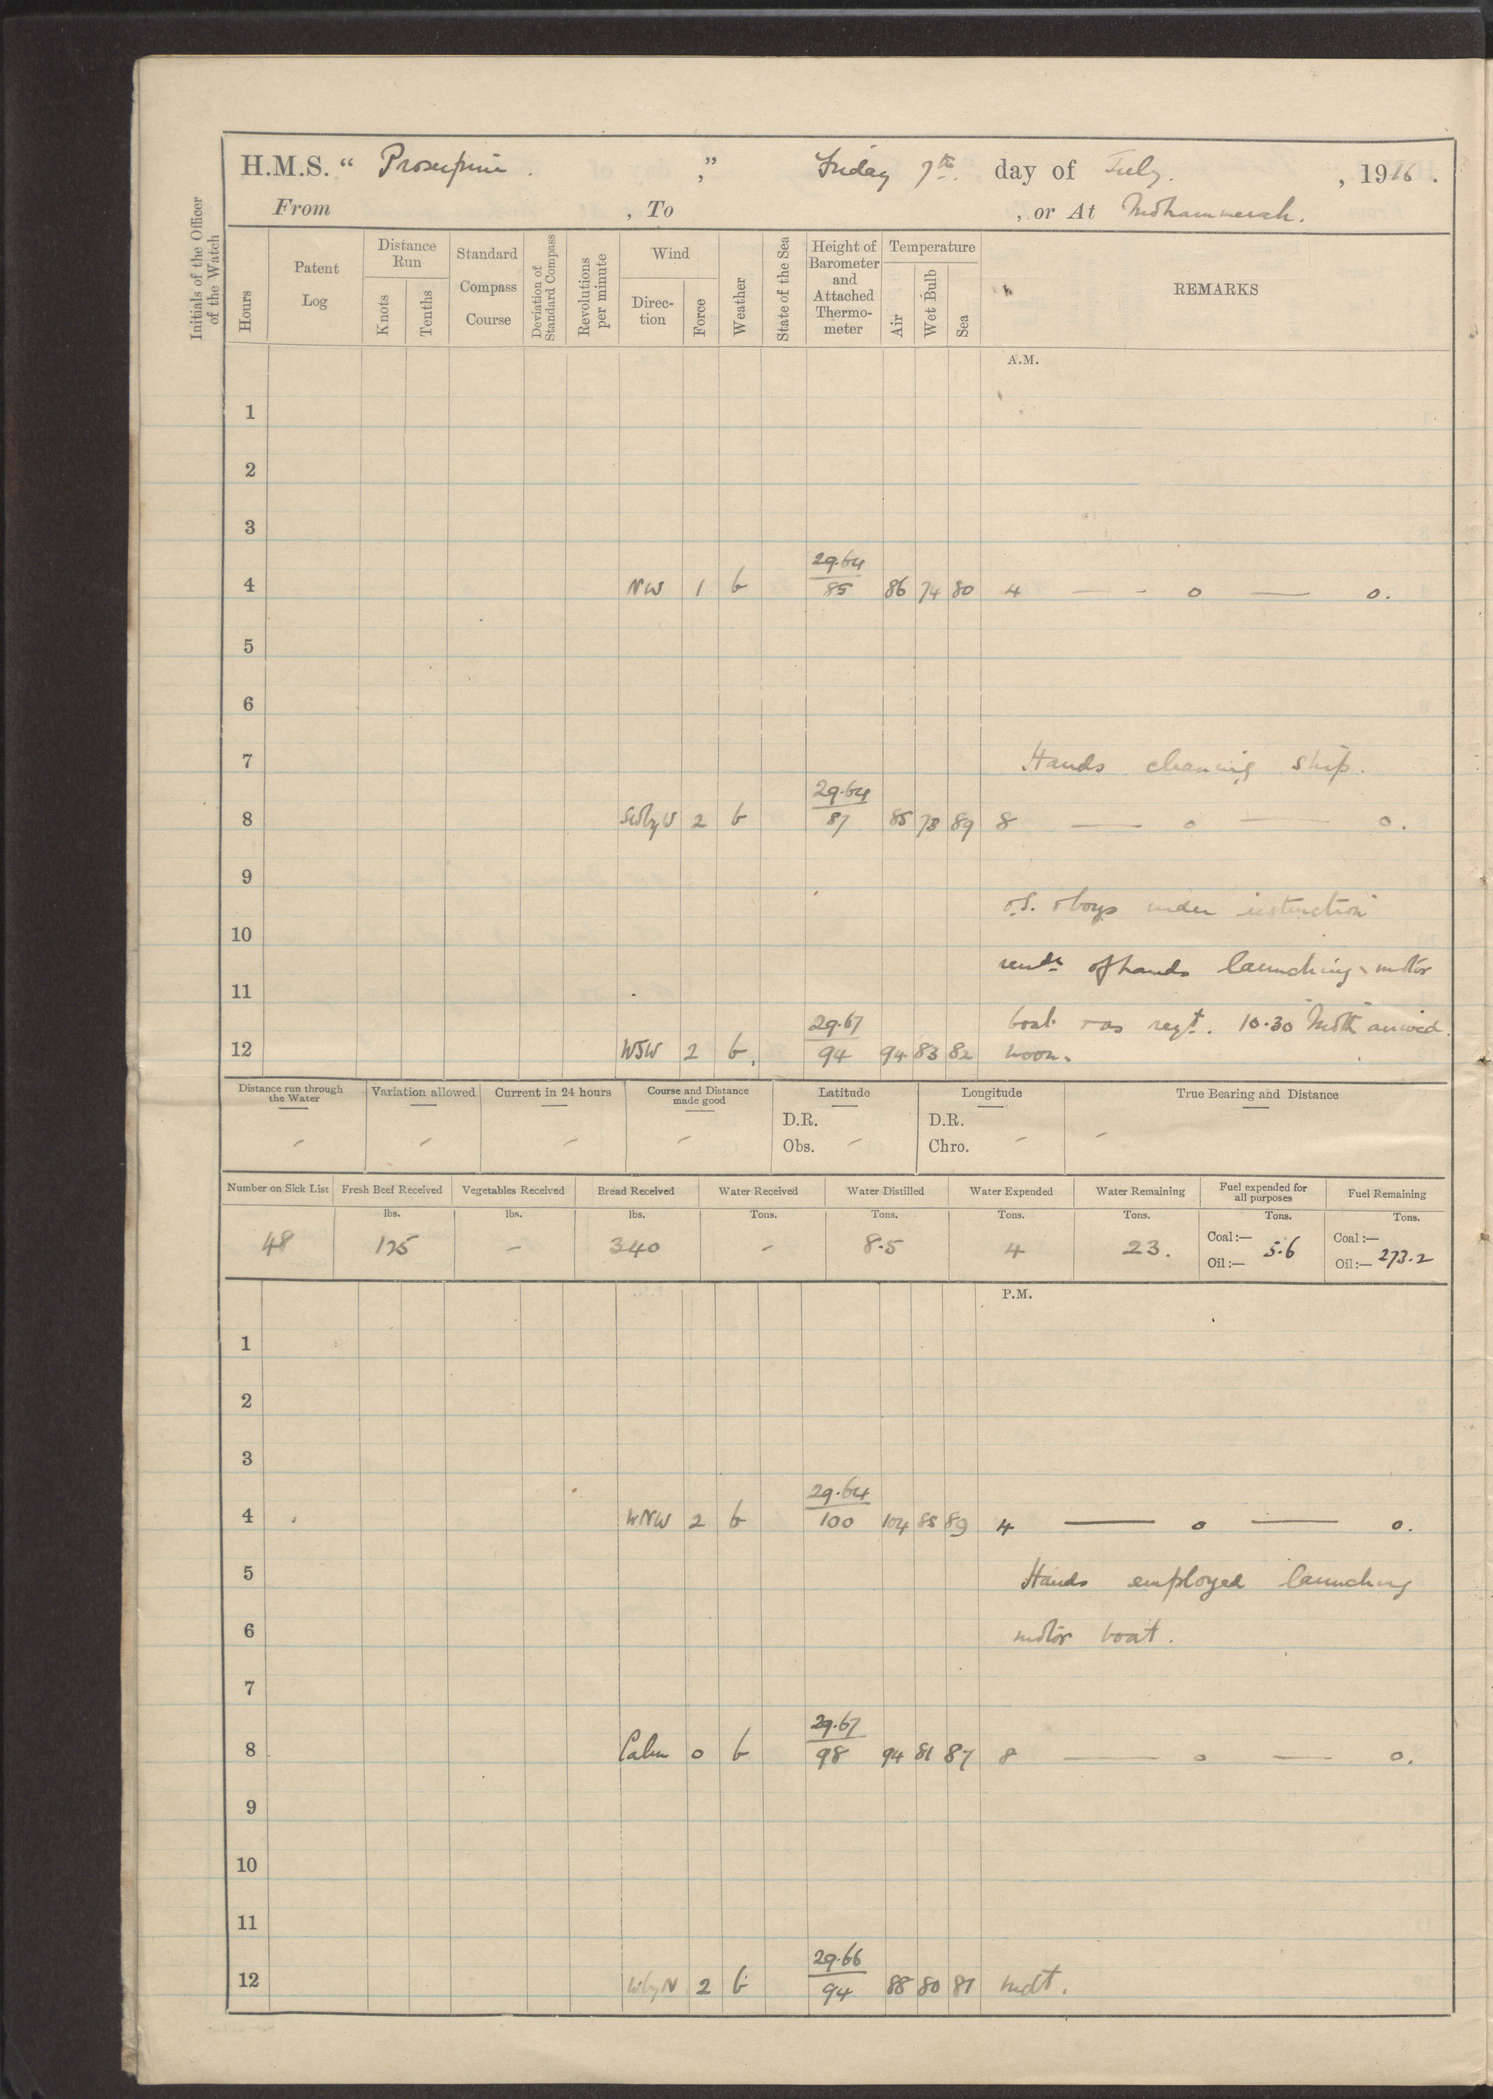 H.M.S. “ Proserpine . ,” Friday 7th. day of July. , 1916 .
From , To , or At Mohammerah.
Initials of the Officer of the Watch
Hours
Patent Log
Distance Run
Knots
Tenths
Standard Compass Course
Deviation of Standard Compass
Revolutions per minute
Wind
Direc-tion
Force
Weather
State of the Sea
Height of Barometer and Attached Thermo-meter
Temperature
Air
Wet Bulb
Sea
REMARKS
A.M.
1
2
3
29.64
4 NW 1 b 85 86 74 80 4 — - o — o.
5
6
7 Hands cleaning ship.
29.64
8 SW by W 2 b 87 85 78 89 8 — o — o.
9
O.S. & boys under instruction
10
remdr of hands launching motor
11
29.67 boat & as reqt. 10.30 "Moth" arrived.
12 WSW 2 b. 94 94 83 82 noon.
Distance run through the Water
Variation allowed
Current in 24 hours
Course and Distance made good
Latitude
Longitude
True Bearing and Distance
D.R. D.R.
- - - - Obs. - Chro. - -
Number on Sick List Fresh Beef Received Vegetables Received Bread Received Water Received Water Distilled Water Expended Water Remaining Fuel expended for all purposes Fuel Remaining
lbs. lbs. lbs. Tons. Tons. Tons. Tons. Tons. Tons.
48 175 - 340 - 8.5 4 23. Coal:— Oil:— 5.6 Coal:— Oil:— 273.2
P.M.
1
2
3
29.64
4 WNW 2 b 100 104 85 89 4 — o — o.
5 Hands employed launching
6 motor boat.
7
29.67
8 Calm 0 b 98 94 81 87 8 — o — o.
9
10
11
29.66
12 W by N 2 b 94 88 80 87 mdt.